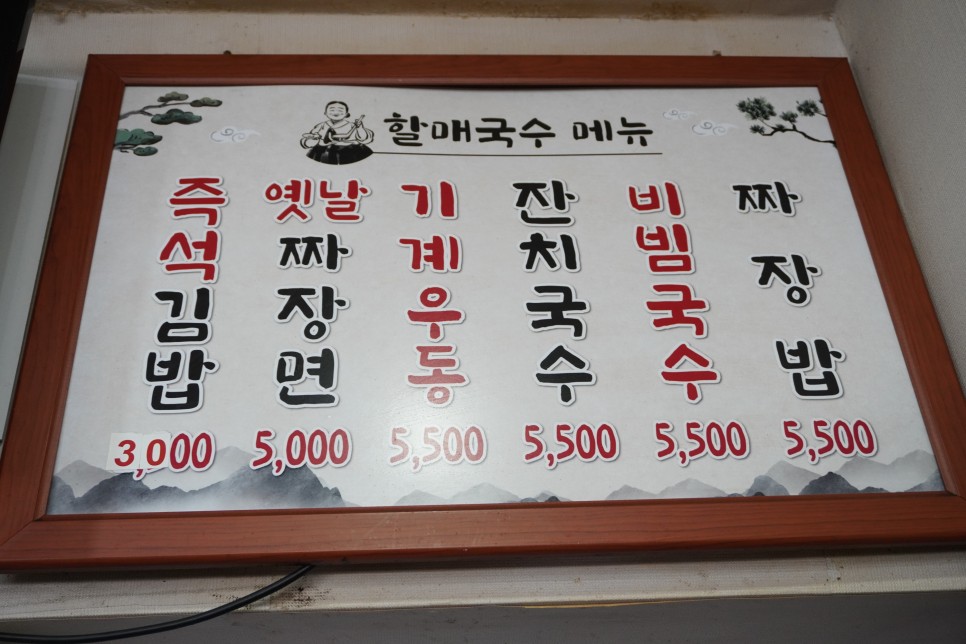 할매국수 메뉴
즉석김밥
3,000
옛날짜장면
5,000
기계우동
5,500
잔치국수
5,500
비빔국수
5,500
짜장밥
5,500